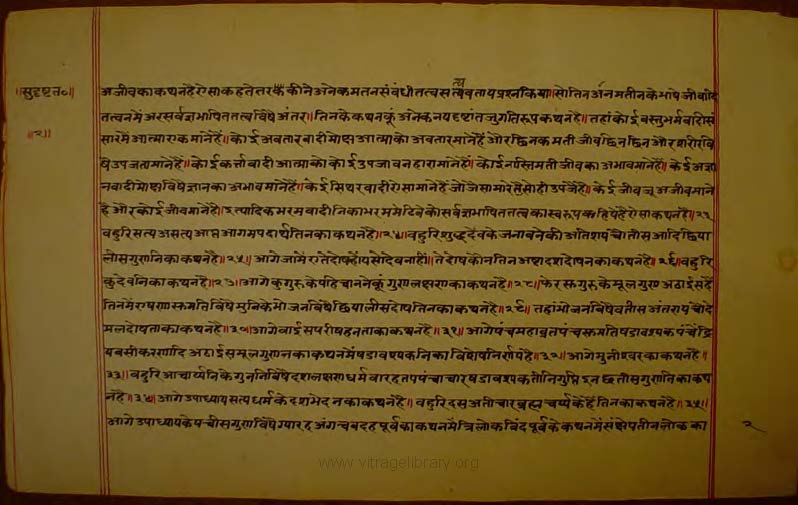 ॥सुदृष्टत०॥
॥२॥
अजीवकाकथनहै ऐसा कहतेतर कीने अनेकमतनसंबंधी तत्वसत्वबताय प्रश्नकिया॥ सो तिन अन्यमतीनके भाषे जीवादि
तत्वनमें अर सर्वज्ञभाषिततत्वविषै अंतर॥ तिनके कथनकूं अनेकनयदृष्टांतजुगतिरुपकथनहै॥ तहां कोई वस्तुभर्मवादी सं
सारमें आत्मा एक मानेहै॥ कोई अवतारवादी मोक्षआत्माको अवतार मानेहैं ओर छिनकमती जीव छिनछिन और शरीरवि
षै उपजता मानेहैं॥ कोई कर्त्तावादी आत्माको कोई उपजावनहारा मानेहों॥ कोई नास्तिमती जीवका अभाव मानेहैं॥ केई अज्ञा
नवादी मोक्षविषै ज्ञानका अभाव मानेहैं॥ केई सिथरवादी ऐसा मानेहैं जो जैसा मरे तैसाही उपजेहै॥ केई जीवकू अजीव माने
है और कोई जीव मानेहै॥ इत्यादिक भरमवादीनिका भरममेटिवेको सर्वज्ञभाषिततत्वका स्वरुप कहियेहै ऐसा कथनहै॥२३॥
बहुरि सत्य असत्य आप्त आगम पदार्थ तिनका कथनहै॥२४॥ बहुरि शुद्धदेवके जनावनेकी अतिशय चौतीस आदि छिया
लीस गुणनिका कथनहै॥२५॥ आगे जामें एते दोष होय सो देव नाहीं॥ ते दोष कौन तिन अष्टादशदोषनका कथनहै॥२६॥ बहुरि
कुदेवनिका कथनहै॥२७॥ आगे कुगुरुके पहिचाननेकूं गुणलक्षणका कथनहै॥२८॥ फेर सुगुरुके मूलगुण अठाईसहैं
तिनमें एषणासमितिविषै मुनिके भोजनविषै छियालीसदोष तिनका कथनहै॥२९॥ तहां भोजनविषै बत्तीस अंतराय चौदे
मलदोष ताका कथनहै॥३०॥ आगे बाईसपरीषहनताका कथनहै॥३१॥ आगे पंचमहाव्रत पंचसमति षडावश्यक पंचेंद्रि
य बसीकरण आदि अठाईस मूलगुणनका कथनमें षडावश्यकनिका विशेषनिर्णयहै॥३२॥ आगे मुनीश्वरका कथनहै॥
३३॥ बहुरि आचार्यनिके गुननिविषै दशलक्षणधर्म बारहतप पंचाचार षडावश्यक तीनिगुप्ति इन छतीसगुणनिका कथ
नहै॥३४॥ आगे उपाध्याय सत्यधर्मके दशभेदनका कथनहै॥ बहुरि दस अतीचार ब्रह्मचर्य्यकेहैं तिनका कथनहै॥३५॥
आगे उपाध्यायके पचीसगुणविषै ग्यारह अंग चवदह पूर्वका कथनमें त्रिलोकबिंदपूर्वके कथनमें संक्षेप तीनलोकका
२
www.vitragelibrary.org